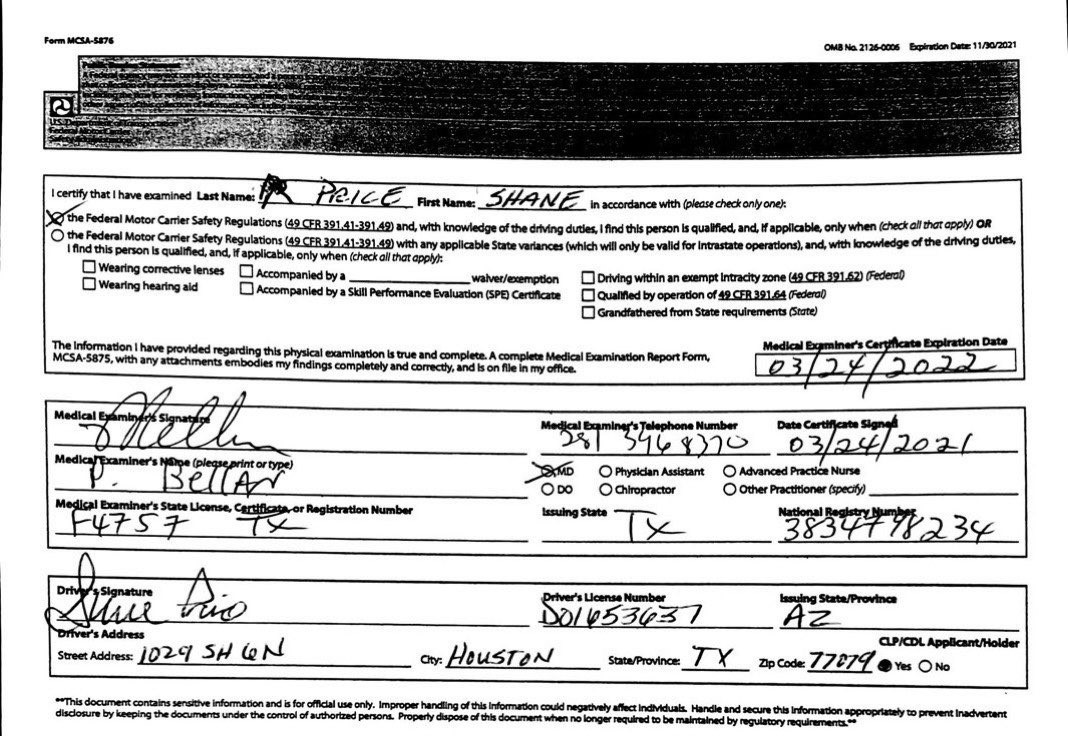 Form MCSA-5876
OMB No. 2126-0006 Expiration Date: 11/30/2021
I certify that I have examined Last Name: PRICE First Name: SHANE in accordance with (please check only one):
the Federal Motor Carrier Safety Regulations (49 CFR 391.41-391.49) and, with knowledge of the driving duties, I find this person is qualified, and, if applicable, only when (check all that apply) OR
the Federal Motor Carrier Safety Regulations (49 CFR 391.41-391.49) with any applicable State variances (which will only be valid for intrastate operations), and, with knowledge of the driving duties,
I find this person is qualified, and, if applicable, only when (check all that apply):
Wearing corrective lenses Accompanied by a waiver/exemption Driving within an exempt intracity zone (49 CFR 391.62) (Federal)
Wearing hearing aid Accompanied by a Skill Performance Evaluation (SPE) Certificate Qualified by operation of 49 CFR 391.64 (Federal)
Grandfathered from State requirements (State)
The information I have provided regarding this physical examination is true and complete. A complete Medical Examination Report Form,
MCSA-5875, with any attachments embodies my findings completely and correctly, and is on file in my office.
Medical Examiner's Certificate Expiration Date
03/24/2022
Medical Examiner's Signature Medical Examiner's Telephone Number Date Certificate Signed
281 3968370 03/24/2021
Medical Examiner's Name (please print or type) MD Physician Assistant Advanced Practice Nurse
P. Bellar DO Chiropractor Other Practitioner (specify)
Medical Examiner's State License, Certificate, or Registration Number Issuing State National Registry Number
F4757 TX TX 3834798234
Driver's Signature Driver's License Number Issuing State/Province
D01653637 AZ
Driver's Address CLP/CDL Applicant/Holder
Street Address: 1029 City: HOUSTON State/Province: TX Zip Code: 77079 Yes No
**This document contains sensitive information and is for official use only. Improper handling of this information could negatively affect individuals. Handle and secure this information appropriately to prevent inadvertent
disclosure by keeping the documents under the control of authorized persons. Properly dispose of this document when no longer required to be maintained by regulatory requirements.**